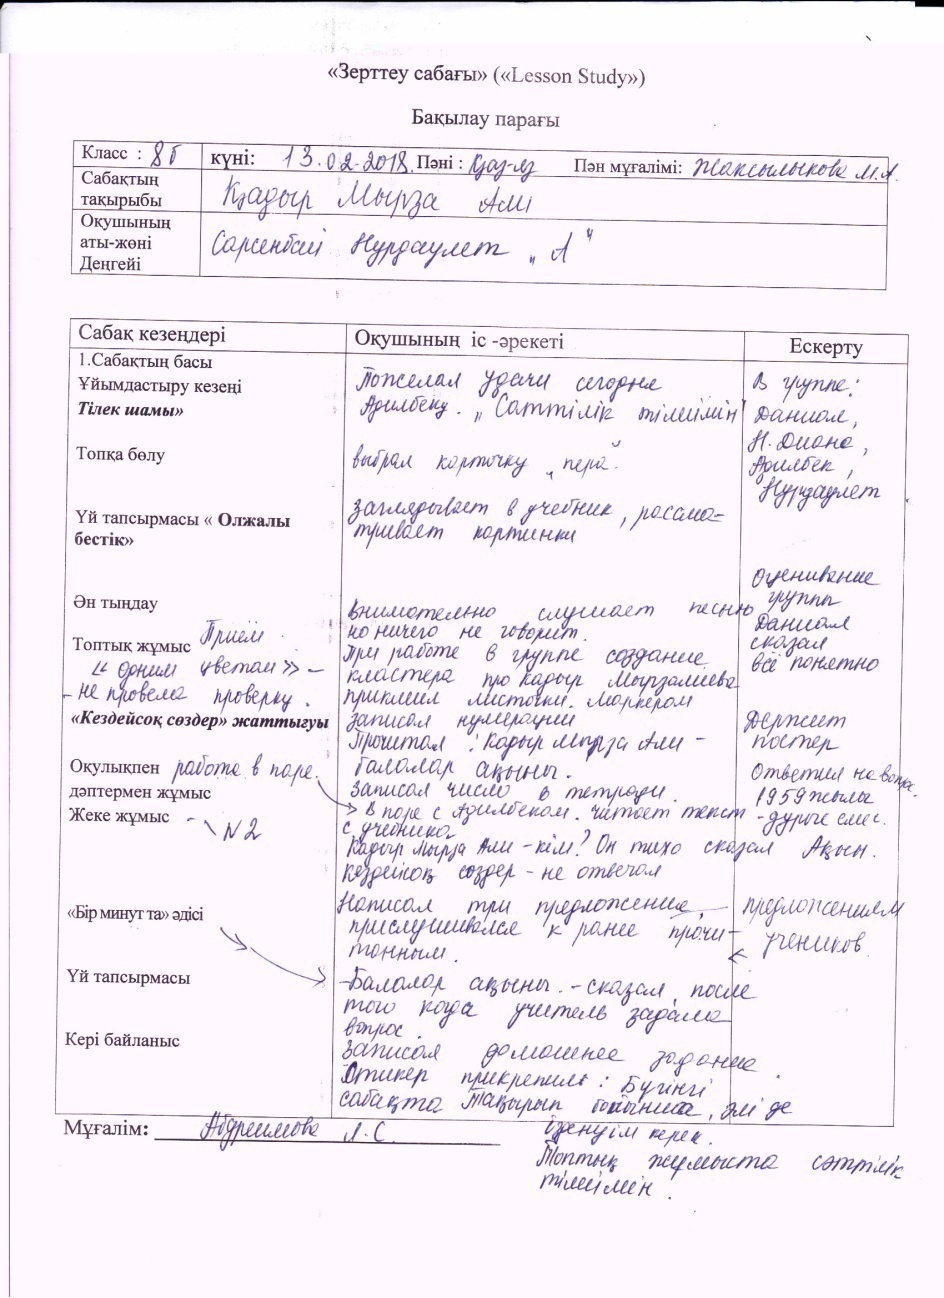 «Зерттеу сабағы» («Lesson Study»)
Бақылау парағы
Класс : 8б күні: 13.02.2018. Пәні : Қаз-яз Пән мұғалімі: Жаксылыкова М.А.
Сабақтың тақырыбы
Қадыр Мырза Али
Оқушының аты-жөні Деңгейі
Сарсенбай Нурдаулет „А"
Сабақ кезеңдері
Оқушының іс -әрекеті
Ескерту
1.Сабақтың басы
Ұйымдастыру кезеңі
Тілек шамы»
Пожелал удачи сегодня
Адилбеку. „Сәттілік тілеймін"
В группе:
Даниал,
Н. Диана,
Адилбек,
Нурдаулет
Топқа бөлу
выбрал карточку „пера".
Үй тапсырмасы « Олжалы
бестік»
Заглядывает в учебник, рассма-
тривает картинки
Ән тыңдау
внимательно слушает песню
но ничего не говорит.
Оценивание
группы
Даниал
сказал
всё понятно
Топтық жұмыс Прием
« одним цветом» –
- не провела проверку.
При работе в группе создание
кластера про Кадыр Мырзалиева
приклеил листочки. Маркером
записал нумерации
«Кездейсоқ сөздер» жаттығуы
Прочитал : Кадыр Мырза Али –
балалар ақыны.
Держит
постер
Оқулықпен работа в паре.
дәптермен жұмыс
Жеке жұмыс - N2
Записал число в тетради.
В паре с Адилбеком. читает текст
с учебника
Кадыр Мырза Али – кім? Он тихо сказал Ақын.
Кездейсоқ сөздер – не отвечал
Ответил на вопрос.
1959 жылы
- дұрыс емес.
«Бір минут та» әдісі
Написал три предложение,
прислушивался к ранее прочи-
танным.
предложениям
учеников
Үй тапсырмасы
- Балалар ақыны. - сказал, после
того когда учитель задала
вопрос.
Кері байланыс
Записал домашнее задание.
Стикер прикрепил : Бүгінгі
сабақта Тақырып бойынша, әлі де
ізденуім керек.
Топтық жұмыста сәттілік
тілеймін.
Мұғалім: Абдреимова Л.С.